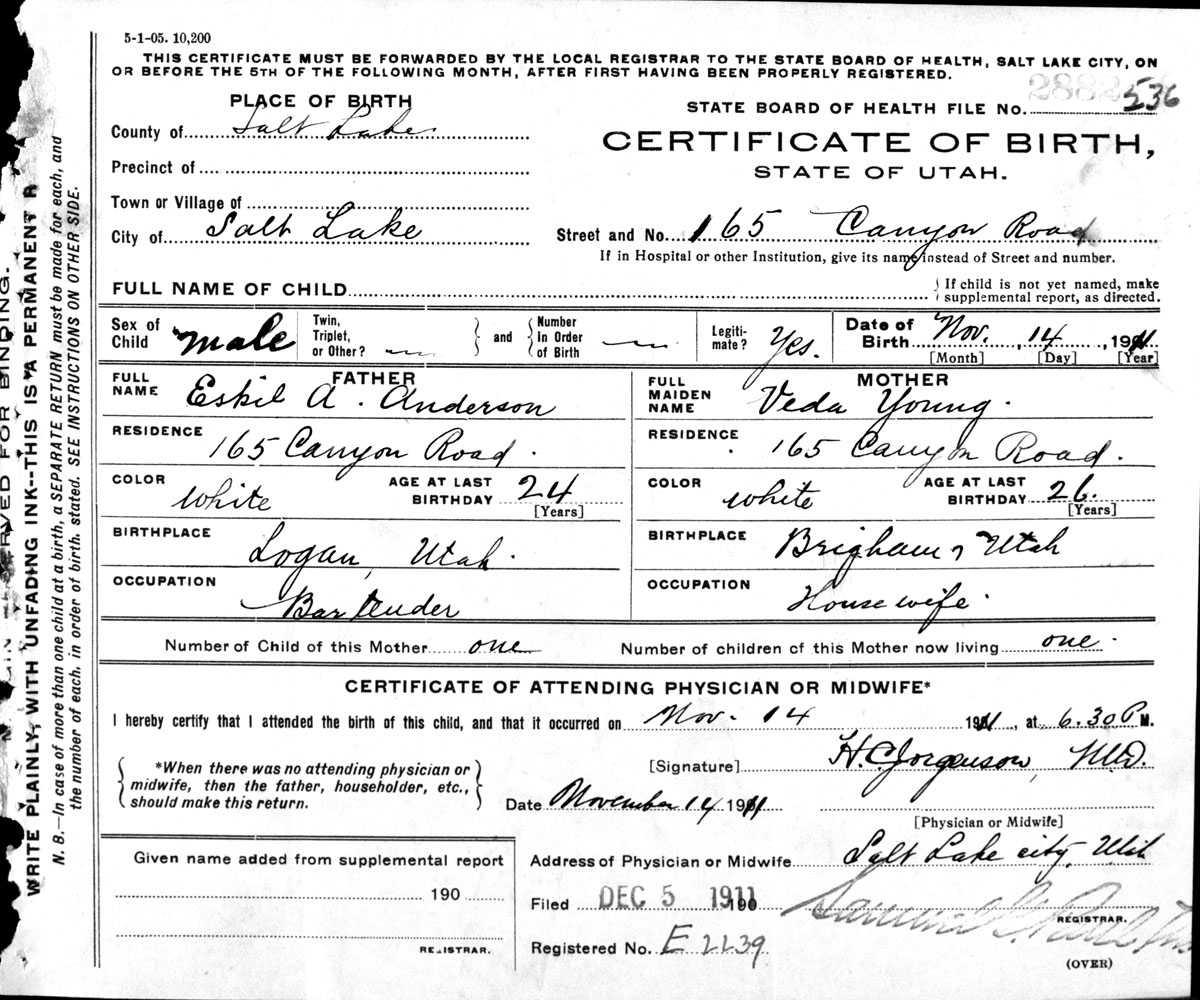 5-1-05. 10,200
THIS CERTIFICATE MUST BE FORWARDED BY THE LOCAL REGISTRAR TO THE STATE BOARD OF HEALTH, SALT LAKE CITY, ON
OR BEFORE THE 5TH OF THE FOLLOWING MONTH, AFTER FIRST HAVING BEEN PROPERLY REGISTERED.
PLACE OF BIRTH
County of Salt Lake
Precinct of
Town or Village of
City of Salt Lake
STATE BOARD OF HEALTH FILE No. 2882 536
CERTIFICATE OF BIRTH,
STATE OF UTAH.
Street and No. 165 Canyon Road
If in Hospital or other Institution, give its name instead of Street and number.
FULL NAME OF CHILD
If child is not yet named, make
supplemental report, as directed.
Sex of
Child male
Twin,
Triplet,
or Other?
and
Number
in Order
of Birth
Legiti-
mate? Yes.
Date of
Birth Nov. 14, 1911
[Month] [Day] [Year]
FATHER
FULL
NAME Eskil A. Anderson
RESIDENCE
165 Canyon Road.
COLOR white
AGE AT LAST
BIRTHDAY 24
[Years]
BIRTHPLACE
Logan, Utah.
OCCUPATION
Bartender
MOTHER
FULL
MAIDEN
NAME Veda Young.
RESIDENCE
165 Canyon Road.
COLOR white
AGE AT LAST
BIRTHDAY 26.
[Years]
BIRTHPLACE
Brigham, Utah
OCCUPATION
Housewife.
Number of Child of this Mother one
Number of children of this Mother now living one.
CERTIFICATE OF ATTENDING PHYSICIAN OR MIDWIFE*
I hereby certify that I attended the birth of this child, and that it occurred on Nov. 14 1911, at 6.30 P.M.
*When there was no attending physician or
midwife, then the father, householder, etc.,
should make this return.
[Signature] H.C. Jorgenson, M.D.
Date November 14 1911
[Physician or Midwife]
Given name added from supplemental report
190
REGISTRAR.
Address of Physician or Midwife Salt Lake city, Utah
Filed DEC 5 1911 190
Samuel G. Paul
REGISTRAR.
Registered No. E 2239
(OVER)
RVED FOR BINDING.
WRITE PLAINLY, WITH UNFADING INK--THIS IS A PERMANENT R
N. B.—In case of more than one child at a birth, a SEPARATE RETURN must be made for each, and
the number of each, in order of birth, stated. SEE INSTRUCTIONS ON OTHER SIDE.